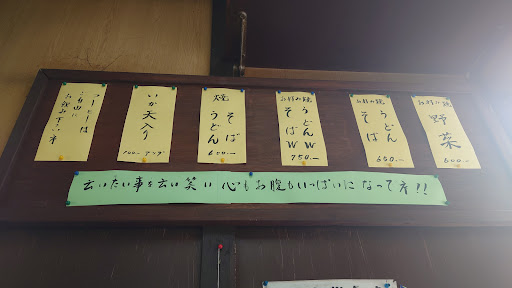 お好み焼
野菜
600.—
お好み焼
うどん
そば
650.—
お好み焼
うどんW
そばW
750.—
焼
そば
うどん
600.—
いか天入り
100.— アップ
コーヒーは
ご自由に
お飲み下さい
云いたい事を云い笑い心もお腹もいっぱいになって方!!